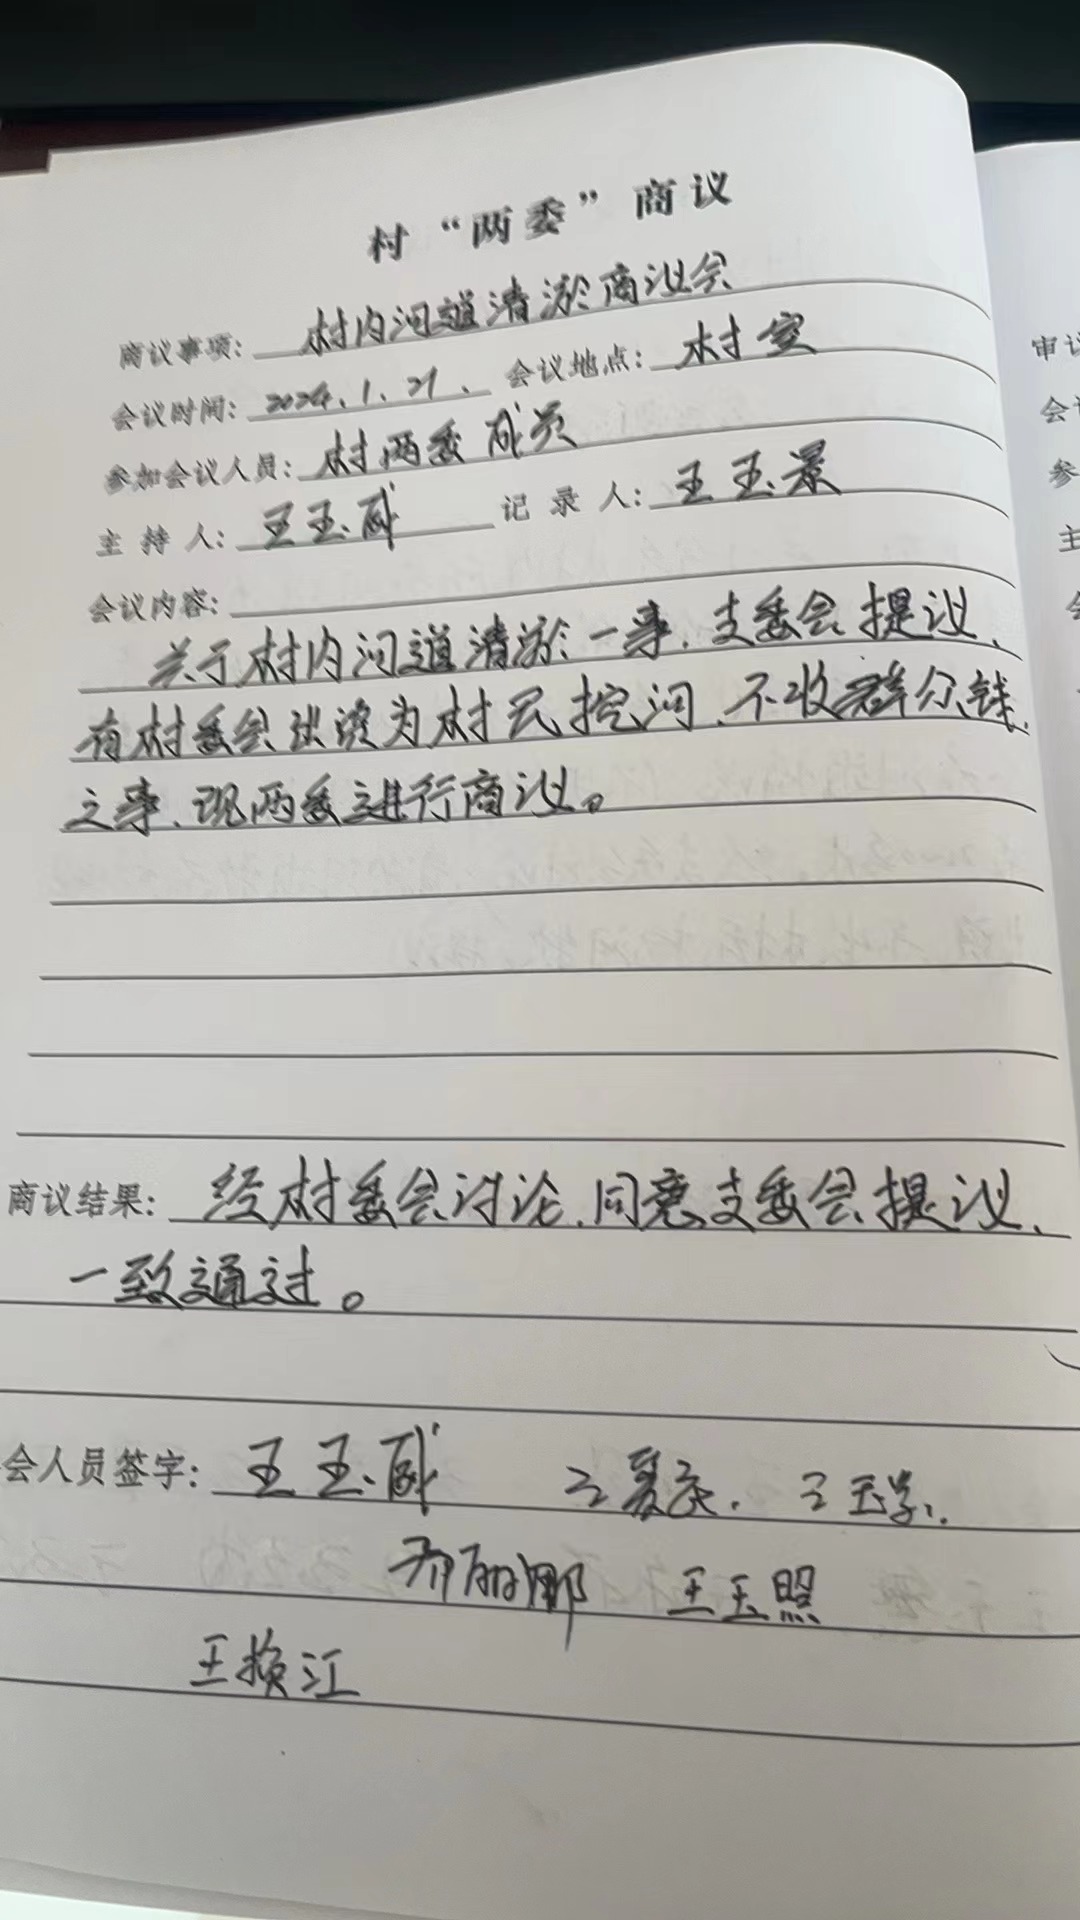 村“两委”商议
商议事项: 村内河道清淤商议会
会议时间: 2024.1.21. 会议地点: 村室
参加会议人员: 村两委成员
主持人: 王玉威 记录人: 王玉景
会议内容:
关于村内河道清淤一事,支委会提议,
有村委会出资为村民挖河,不收群众钱,
之事,现两委进行商议。
商议结果: 经村委会讨论,同意支委会提议,
一致通过。
会人员签字: 王玉威 王
乔丽娜 王玉照
王换江
审议
会
参
主
会